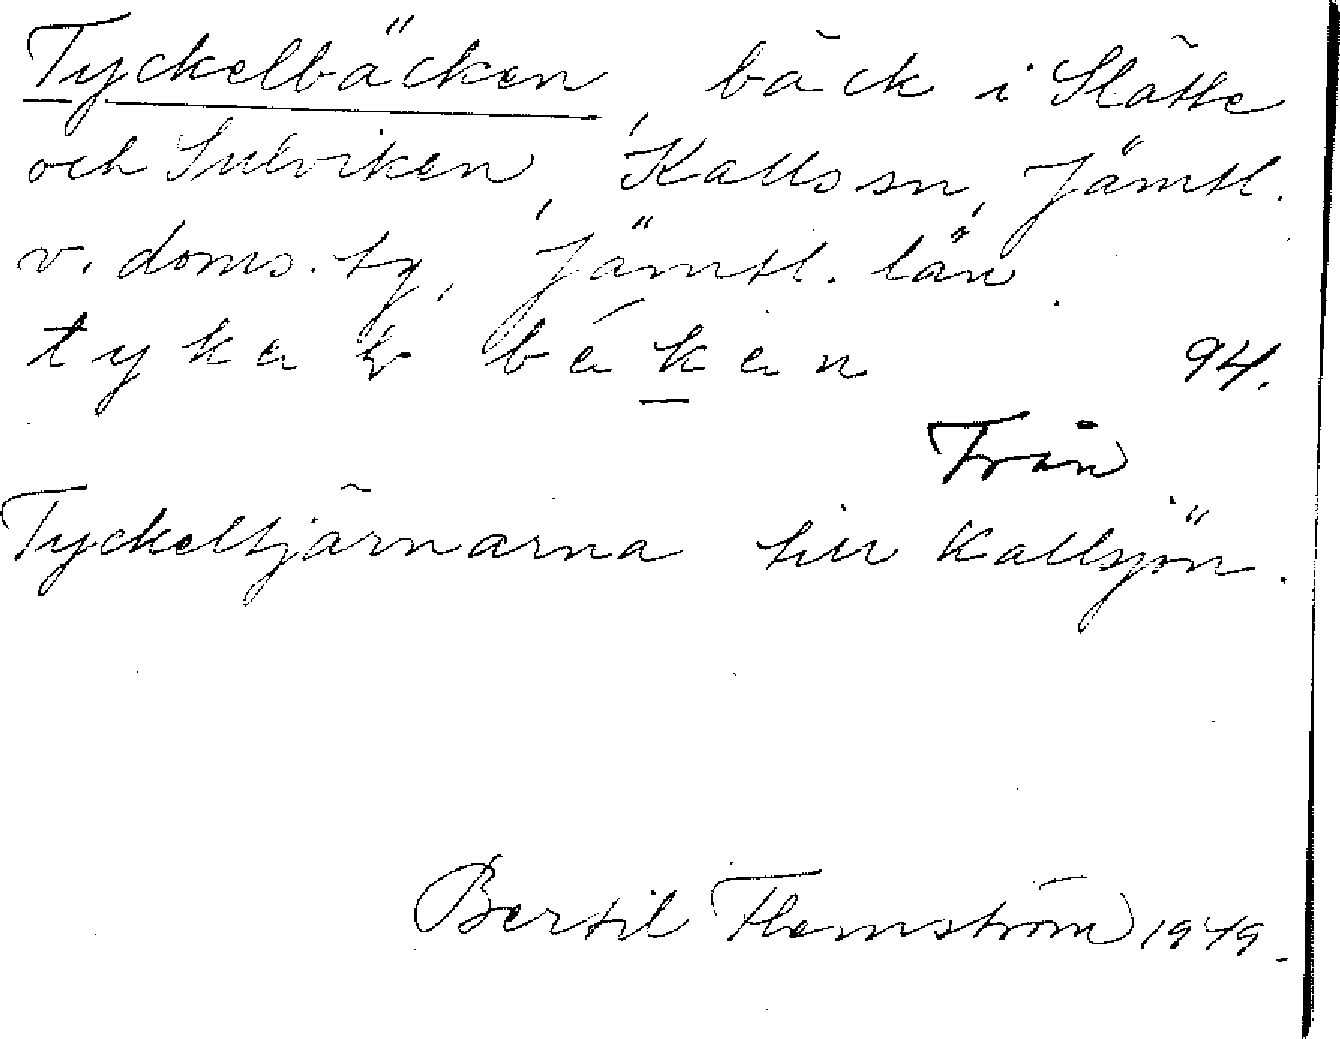 Tyckelbäcken, bäck i Slätte
och Sulviken, Kalls sn, Jämtl.
v. doms. tg, Jämtl. län.
94.
Från
Tyckeltjärnarna till Kallsjön.
Bertil Flemström 1949.